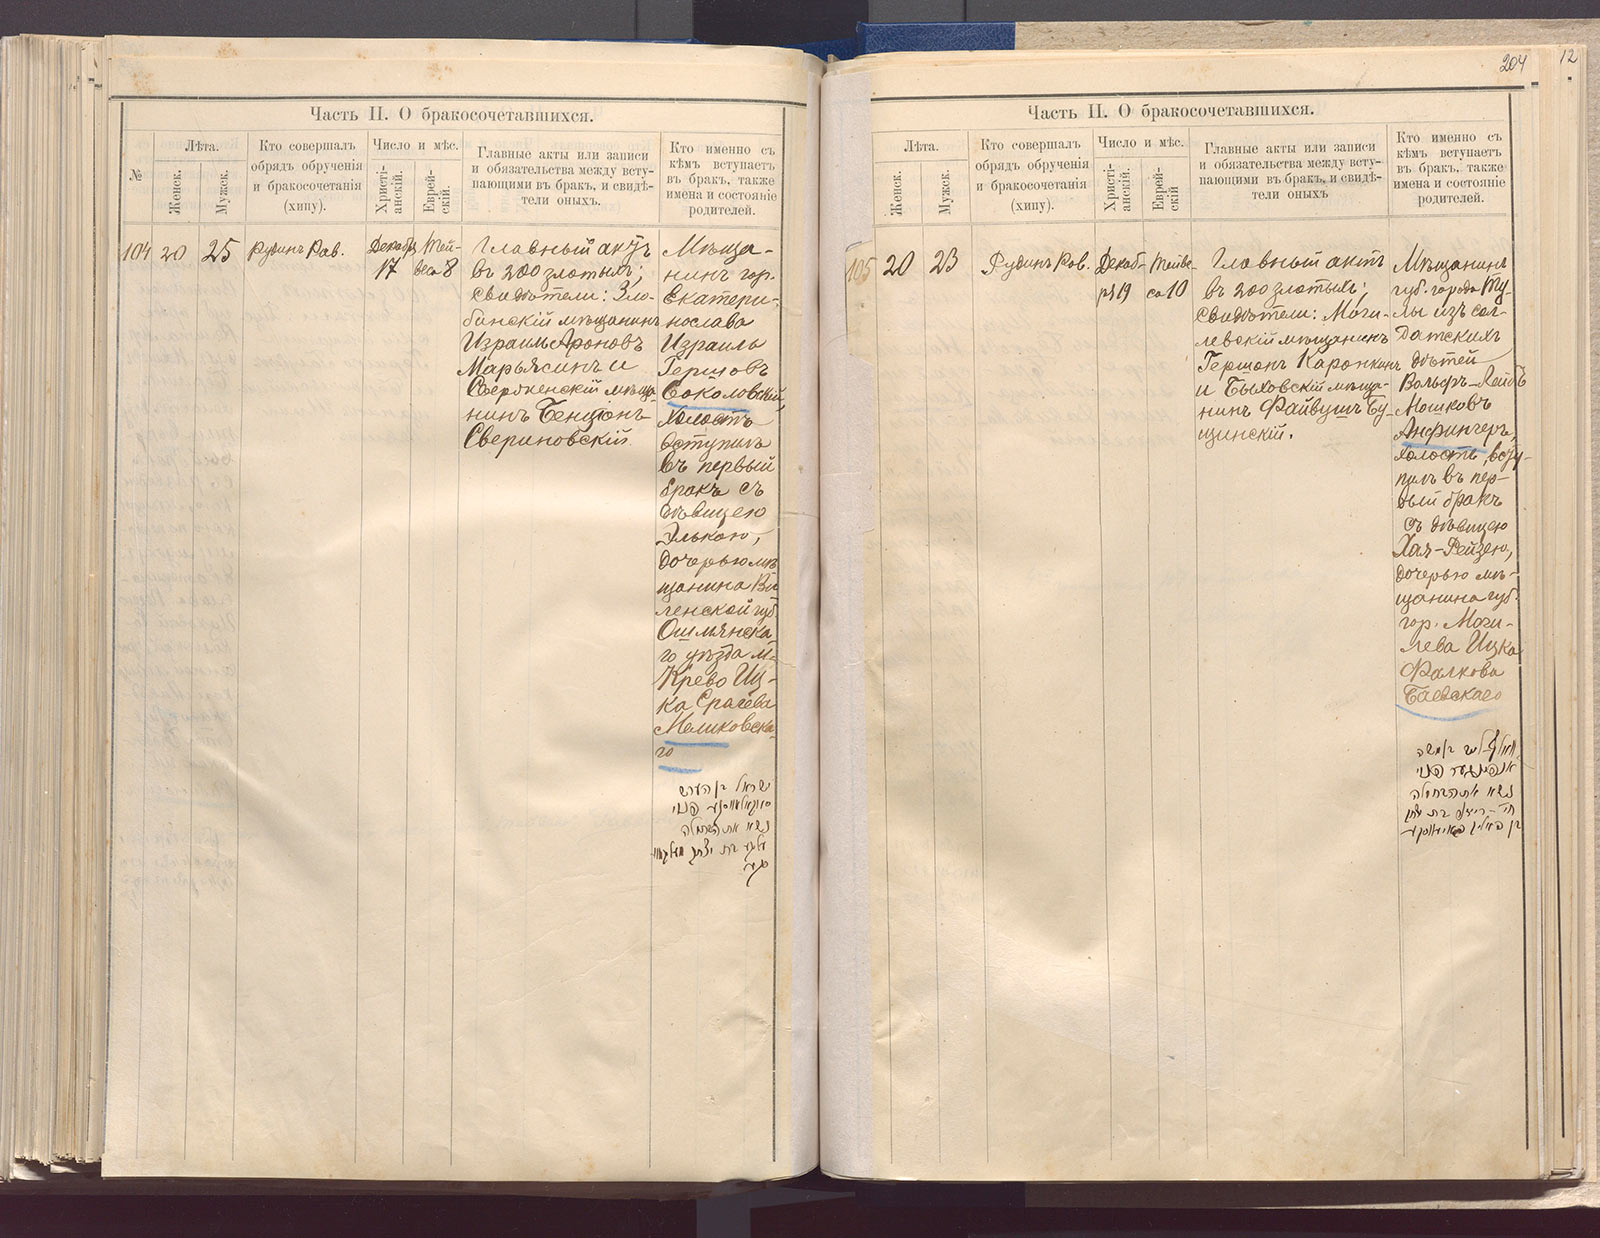 Часть II. О бракосочетавшихся.
№
Лѣта.
Женск.
Мужск.
Кто совершалъ
обрядъ обрученія
и бракосочетанія
(хипу).
Число и мѣс.
Христі-
анскій.
Еврей-
скій.
Главные акты или записи
и обязательства между всту-
пающими въ бракъ, и свидѣ-
тели оныхъ.
Кто именно съ
кѣмъ вступаетъ
въ бракъ, также
имена и состояніе
родителей.
104
20
25
Рудинъ Рав.
Декабр
17
Тей-
веса 8
Главный актъ
въ 200 злотыхъ;
свидѣтели: Зло-
бинскій мѣщанинъ
Израиль Ароновъ
Марьясинъ и
мѣща-
нинъ Бенціонъ
Свериновскій
Мѣща-
нинъ гор.
Екатери-
нослава
Израиль
Гершовъ
Соколовскій,
холостъ
вступилъ
въ первый
бракъ съ
дѣвицею
Элькою,
дочерью мѣ-
щанина Ви-
ленской губ.
Ошмянска-
го уѣзда м.
Крево Иц-
ка
Меликовска-
го
ישראל בן הערש
נשא את הבתולה
עלקע בת יצחק
204
12
Часть II. О бракосочетавшихся.
Лѣта.
Женск.
Мужск.
Кто совершалъ
обрядъ обрученія
и бракосочетанія
(хипу).
Число и мѣс.
Христі-
анскій.
Еврей-
скій
Главные акты или записи
и обязательства между всту-
пающими въ бракъ, и свидѣ-
тели оныхъ
Кто именно съ
кѣмъ вступаетъ
въ бракъ, также
имена и состояніе
родителей.
105
20
23
Рудинъ Рав.
Декаб-
ря 19
Тейве-
са 10
Главный актъ
въ 200 злотыхъ;
свидѣтели: Моги-
левскій мѣщанинъ
Гершонъ Каронкинъ
и Быховскій мѣща-
нинъ Файвушъ Бу-
щинскій.
Мѣщанинъ
губ. города Ту-
лы изъ сол-
датскихъ
дѣтей
Вольфъ-Лейбъ
Мошковъ
Анфингеръ,
холостъ, всту-
пилъ въ пер-
вый бракъ
съ дѣвицею
Хая-Рейзею,
дочерью мѣ-
щанина губ.
гор. Моги-
лева Ицка
Фалкова
Баевскаго
וואלף-לייב בן משה
נשא את הבתולה
חי'-רייזע בת יצחק